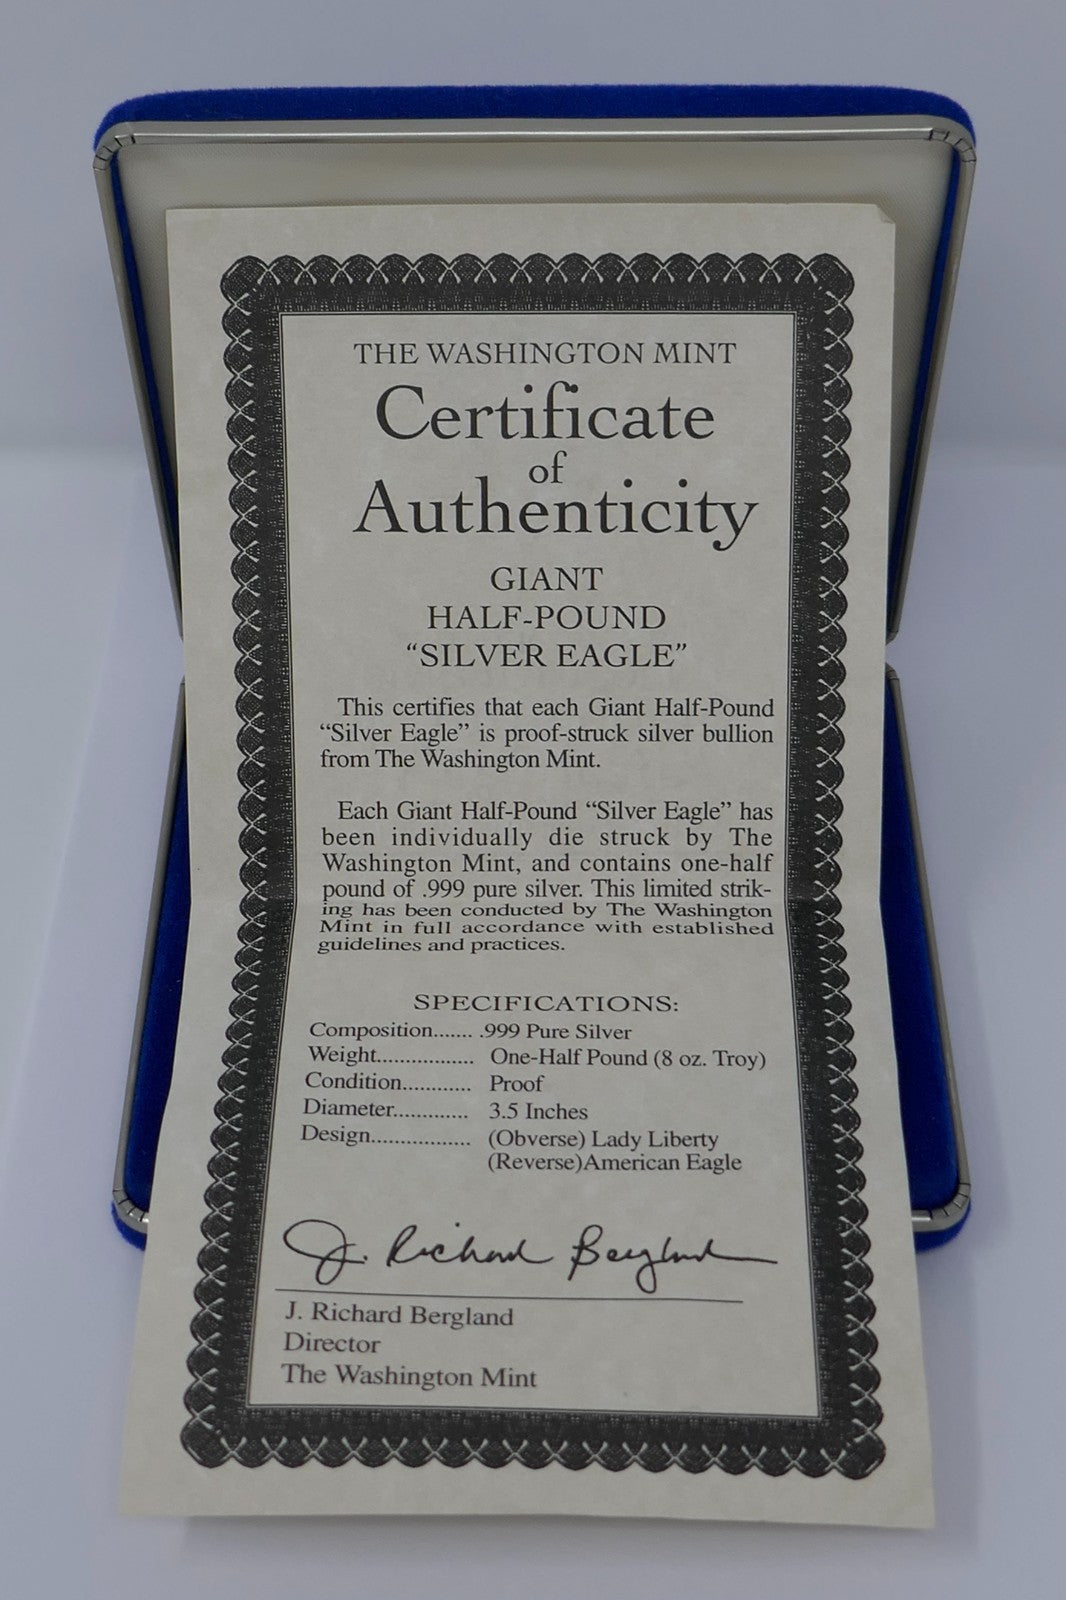 THE WASHINGTON MINT
Certificate
of
Authenticity
GIANT
HALF-POUND
“SILVER EAGLE”
This certifies that each Giant Half-Pound
“Silver Eagle” is proof-struck silver bullion
from The Washington Mint.
Each Giant Half-Pound “Silver Eagle” has
been individually die struck by The
Washington Mint, and contains one-half
pound of .999 pure silver. This limited strik-
ing has been conducted by The Washington
Mint in full accordance with established
guidelines and practices.
SPECIFICATIONS:
Composition....... .999 Pure Silver
Weight................ One-Half Pound (8 oz. Troy)
Condition............ Proof
Diameter............. 3.5 Inches
Design................. (Obverse) Lady Liberty
(Reverse)American Eagle
J. Richard Bergland
J. Richard Bergland
Director
The Washington Mint